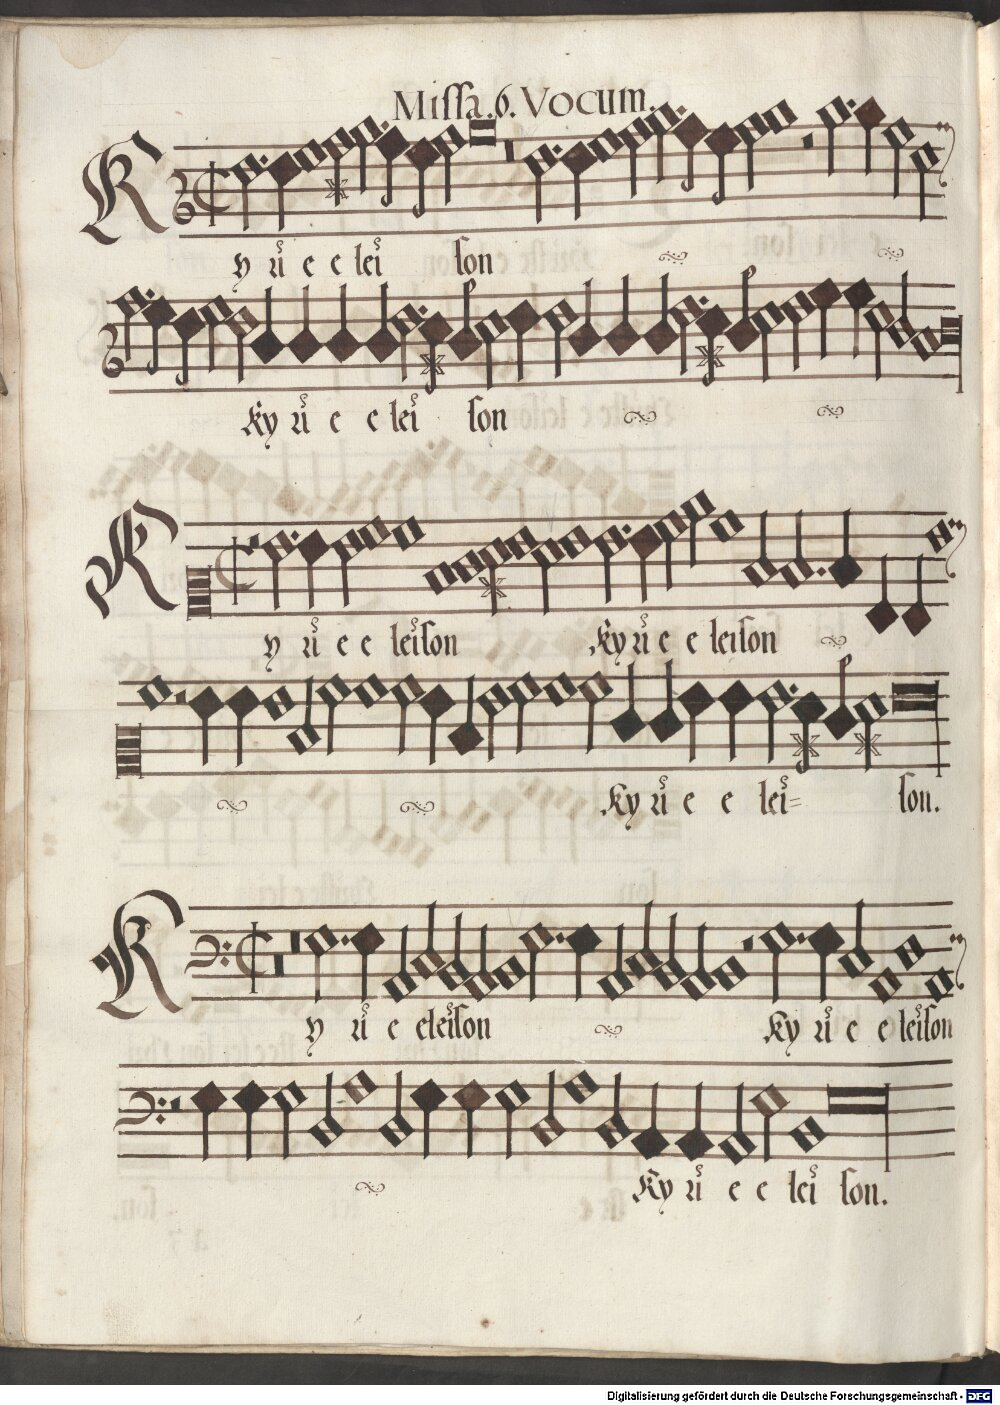 Missa. 6. Vocum.
Kyri e e lei son
Ky ri e e lei son
Kyri e e leison Ky ri e e leison
Ky ri e e lei= son.
Kyri e eleison Ky ri e e leison
Ky ri e e lei son.
Digitalisierung gefördert durch die Deutsche Forschungsgemeinschaft - DFG